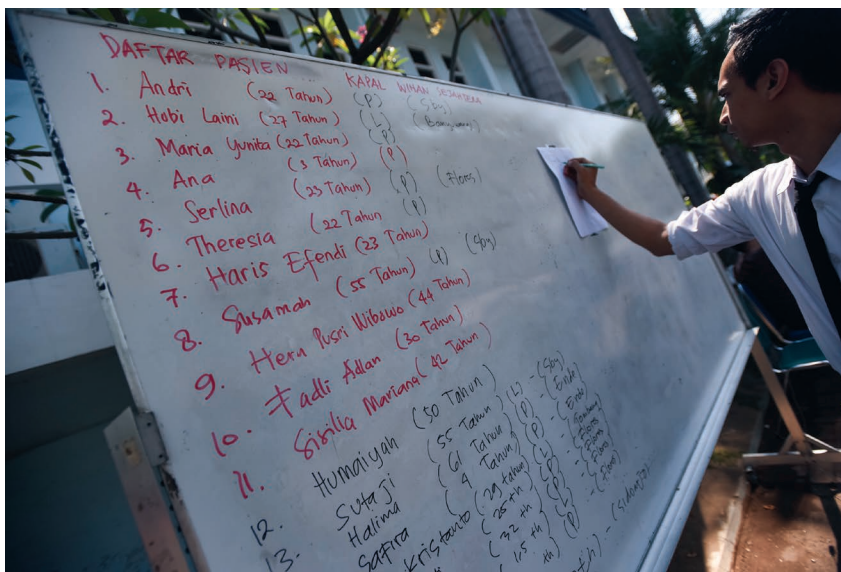 DAFTAR PASIEN KAPAL WIHAN SEJAHTERA
1. Andri (22 Tahun) (P) (Sby)
2. Hobi Laini (27 Tahun) (L) (Banyuwangi)
3. Maria Yunita (22 Tahun) (P)
4. Ana (3 Tahun) (P)
5. Serlina (23 Tahun) (P) (Flores)
6. Theresia (22 Tahun (P)
7. Haris Efendi (23 Tahun)
8. Susaman (55 Tahun) (P) (Sby)
9. Heru Pusri Wibowo (44 Tahun)
10. Fadli Adlan (30 Tahun)
11. Sisilia Mariana (42 Tahun)
12. Humaiyah (50 Tahun)
13. Sutaji (55 Tahun) (L) - (Sby)
Halima (61 Tahun) (P) - (Ende)
Safira (4 Tahun) (P) - (Ende)
Kristanto (29 tahun) (L)
(25 th) (P) - (Flores)
(32 th) (L) - (Flores)
(1,5 th) (P) - (Flores)
th) - (Sidoarjo)